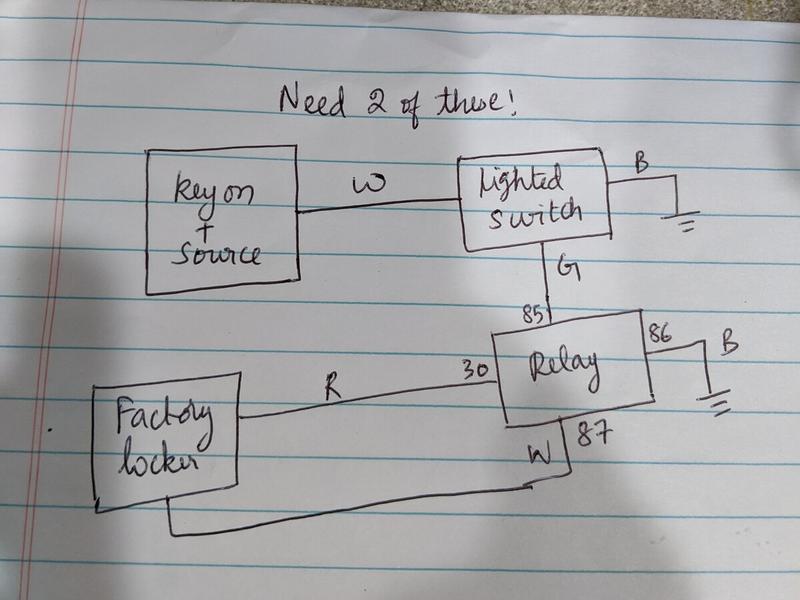 Need 2 of these!
key on
+
Source
W
Lighted
Switch
B
G
85
86
B
Relay
30
R
87
W
Factory
locker